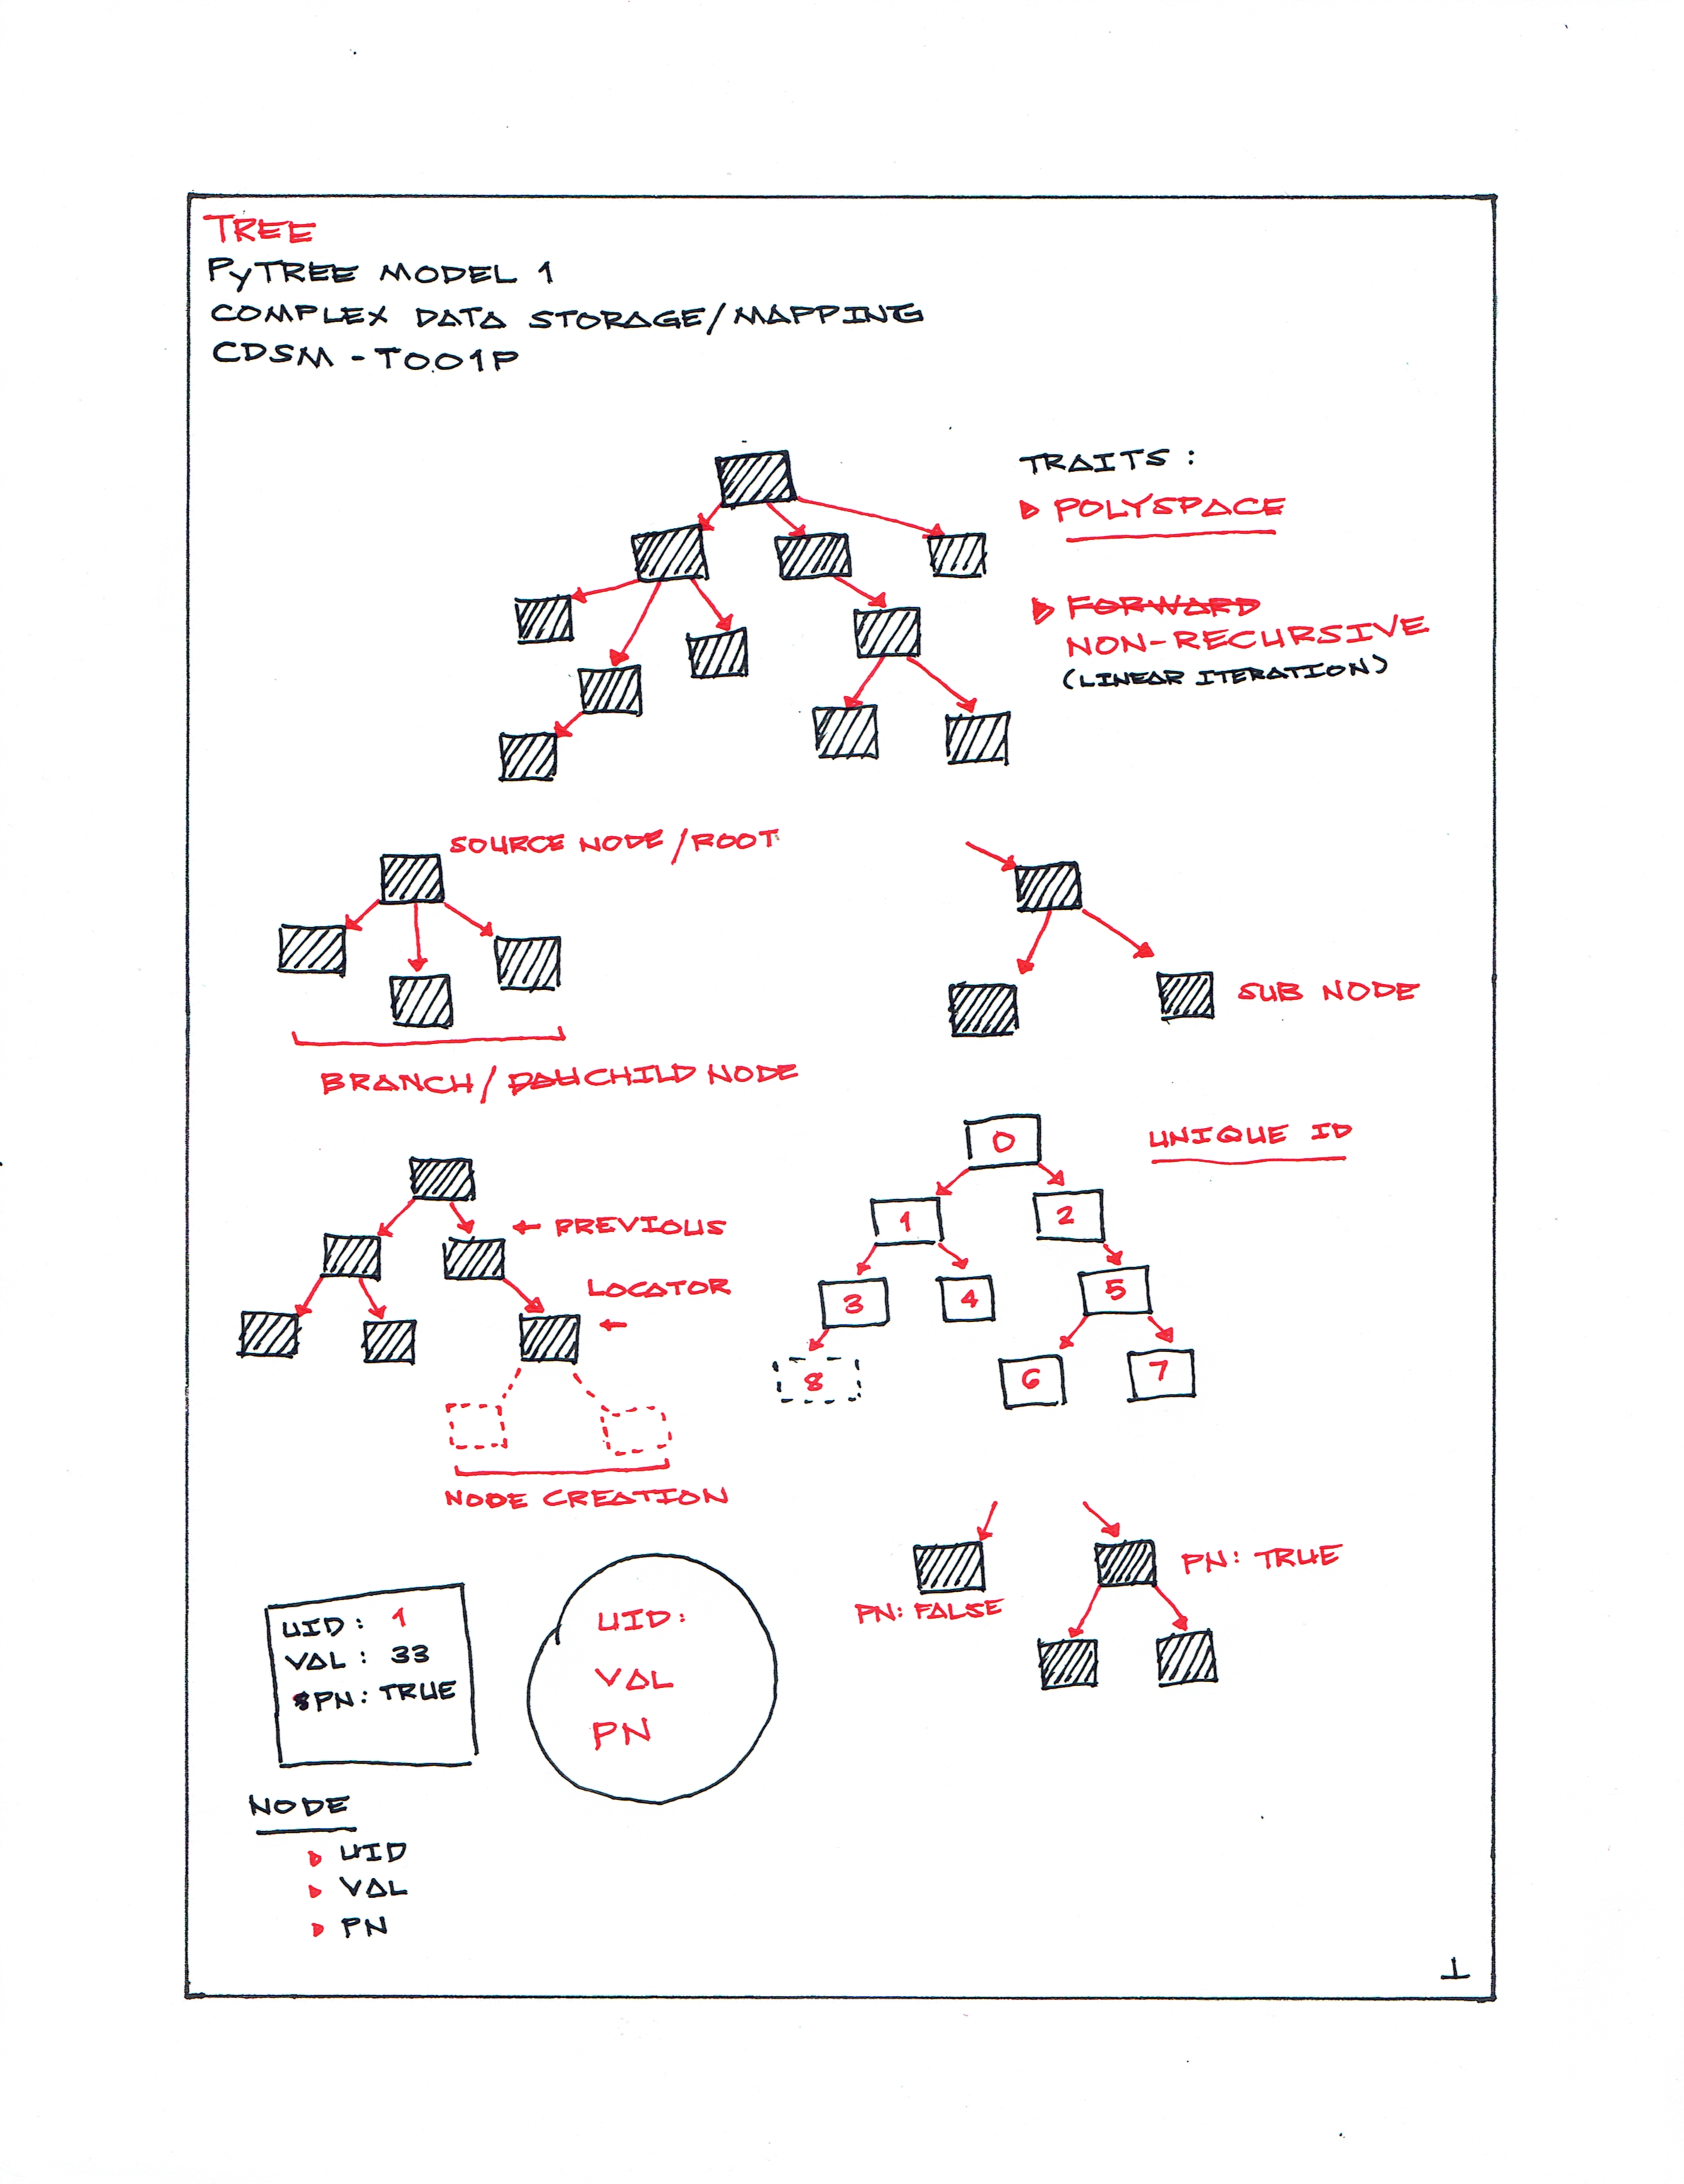 TREE
PyTREE MODEL 1
COMPLEX DATA STORAGE/MAPPING
CDSM - T001P
TRAITS:
POLYSPACE
FORWARD
NON-RECURSIVE
(LINEAR ITERATION)
SOURCE NODE/ROOT
SUB NODE
BRANCH/DAUCHILD NODE
UNIQUE ID
0
1
2
3
4
5
6
7
8
PREVIOUS
LOCATOR
NODE CREATION
PN: FALSE
PN: TRUE
UID: 1
VAL: 33
PN: TRUE
UID:
VAL
PN
NODE
UID
VAL
PN
1